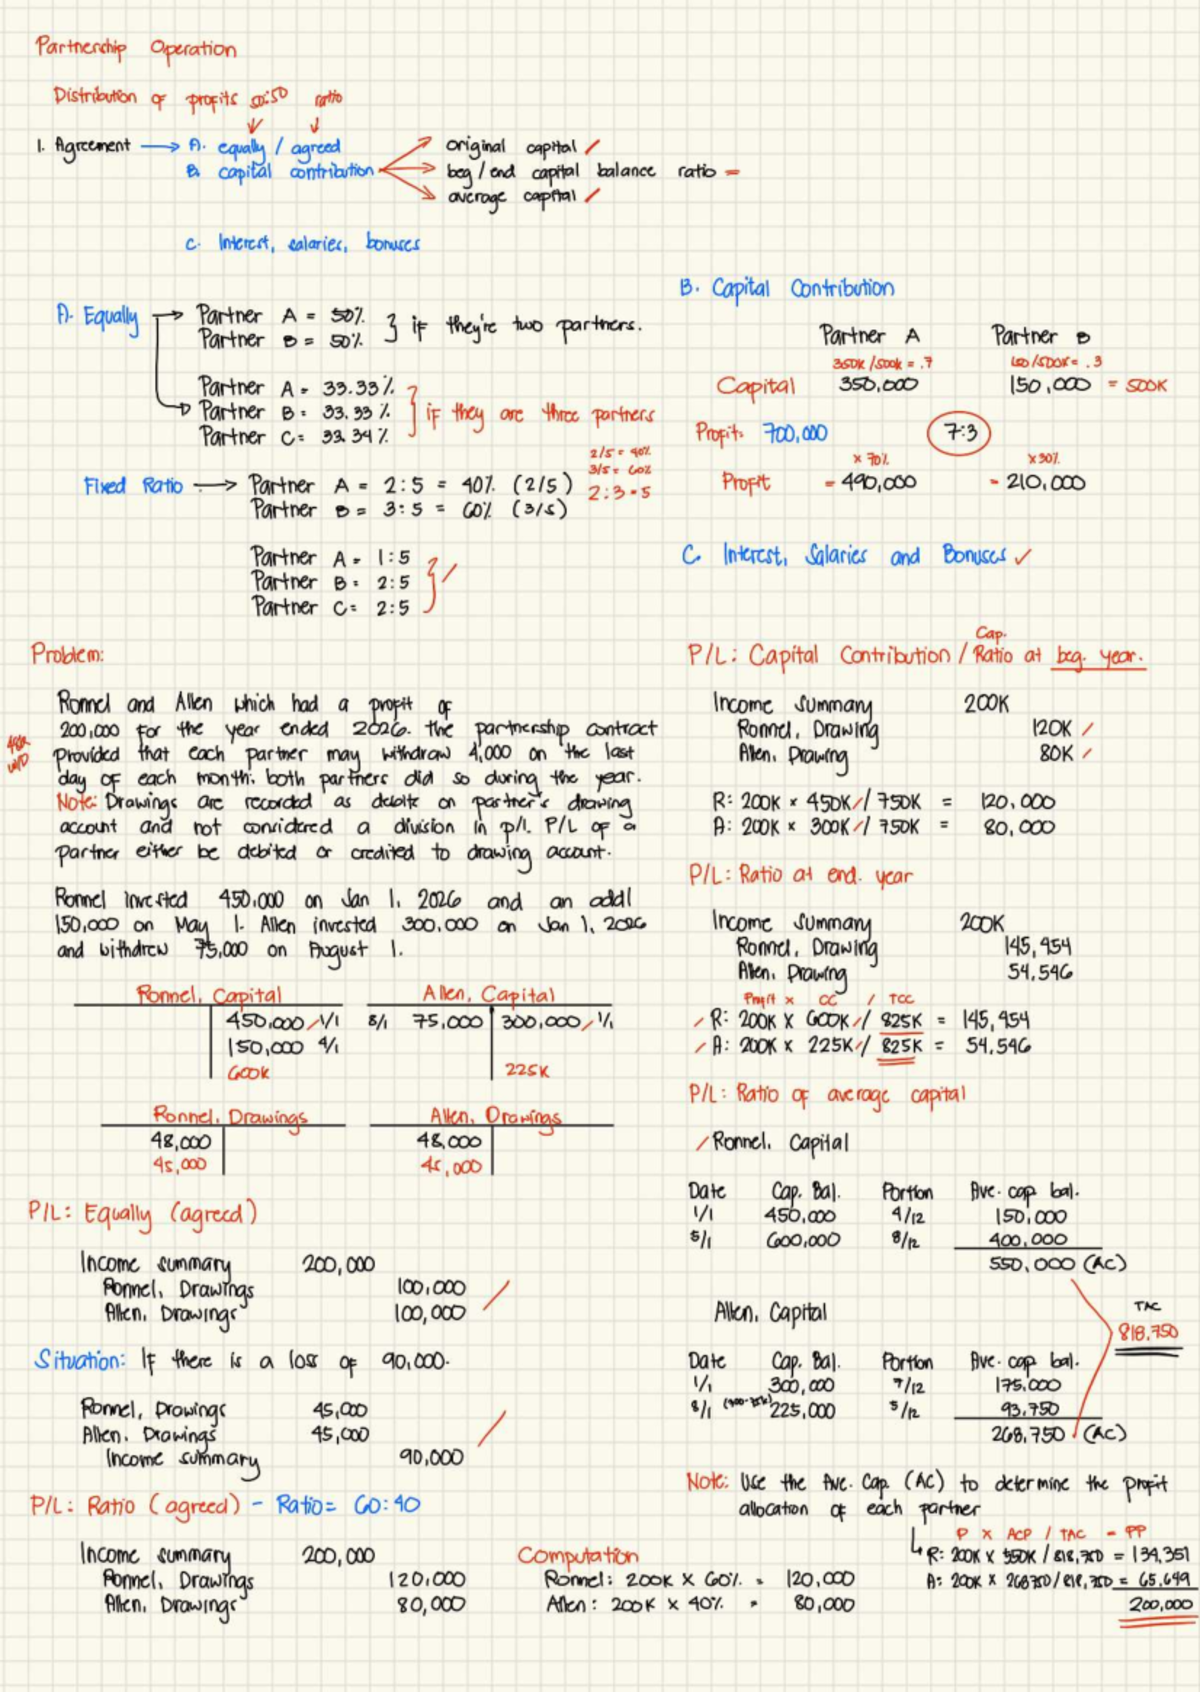 Partnership Operation
Distribution of profits 50:50 ratio
1. Agreement → A. equally / agreed
B. capital contribution
original capital
beg / end capital balance ratio
average capital
C. Interest, salaries, bonuses
A. Equally → Partner A = 50%
Partner B = 50%
} if they're two partners.
Partner A = 33.33%
Partner B = 33.33%
Partner C = 33.34%
} if they are three partners
Fixed Ratio → Partner A = 2:5 = 40% (2/5)
Partner B = 3:5 = 60% (3/5)
2/5 = 40%
3/5 = 60%
2:3 = 5
Partner A = 1:5
Partner B = 2:5
Partner C = 2:5
B. Capital Contribution
Partner A Partner B
350K/500K = .7 150/500K = .3
Capital 350,000 150,000 = 500K
Profit: 700,000 7:3
x 70% x 30%
Profit = 490,000 = 210,000
C. Interest, Salaries and Bonuses ✓
Problem:
Ronnel and Allen which had a profit of
200,000 for the year ended 2026. the partnership contract
provided that each partner may withdraw 4,000 on the last
day of each month. both partners did so during the year.
Note: Drawings are recorded as debits on partner's drawing
account and not considered a division in p/l. P/L of a
partner either be debited or credited to drawing account.
48K
W/D
Ronnel invested 450,000 on Jan 1, 2026 and an addl
150,000 on May 1. Allen invested 300,000 on Jan 1, 2026
and withdrew 75,000 on August 1.
Ronnel, Capital
450,000 1/1
150,000
600K
Allen, Capital
8/1 75,000 300,000 1/1
225K
Ronnel, Drawings
48,000
45,000
Allen, Drawings
48,000
45,000
P/L: Equally (agreed)
Income summary 200,000
Ronnel, Drawings 100,000
Allen, Drawings 100,000
Situation: If there is a loss of 90,000.
Ronnel, Drawings 45,000
Allen, Drawings 45,000
Income summary 90,000
P/L: Ratio (agreed) - Ratio = 60:40
Income summary 200,000
Ronnel, Drawings 120,000
Allen, Drawings 80,000
Computation
Ronnel: 200K X 60% = 120,000
Allen: 200K X 40% = 80,000
P/L: Capital Contribution / Cap. Ratio at beg. year.
Income Summary 200K
Ronnel, Drawing 120K
Allen, Drawing 80K
R: 200K x 450K / 750K = 120,000
A: 200K x 300K / 750K = 80,000
P/L: Ratio at end. year
Income Summary 200K
Ronnel, Drawing 145,454
Allen, Drawing 54,546
Profit x CC / TCC
R: 200K X 600K / 825K = 145,454
A: 200K x 225K / 825K = 54,546
P/L: Ratio of average capital
Ronnel, Capital
Date Cap. Bal. Portion Ave. cap bal.
1/1 450,000 4/12 150,000
5/1 600,000 8/12 400,000
550,000 (AC)
Allen, Capital
TAC
818,750
Date Cap. Bal. Portion Ave. cap bal.
1/1 300,000 7/12 175,000
8/1 225,000 5/12 93,750
268,750 (AC)
Note: Use the Ave. Cap. (AC) to determine the profit
allocation of each partner
P X ACP / TAC = PP
R: 200K X 550K / 818,750 = 134,351
A: 200K x 268750 / 818,750 = 65,649
200,000